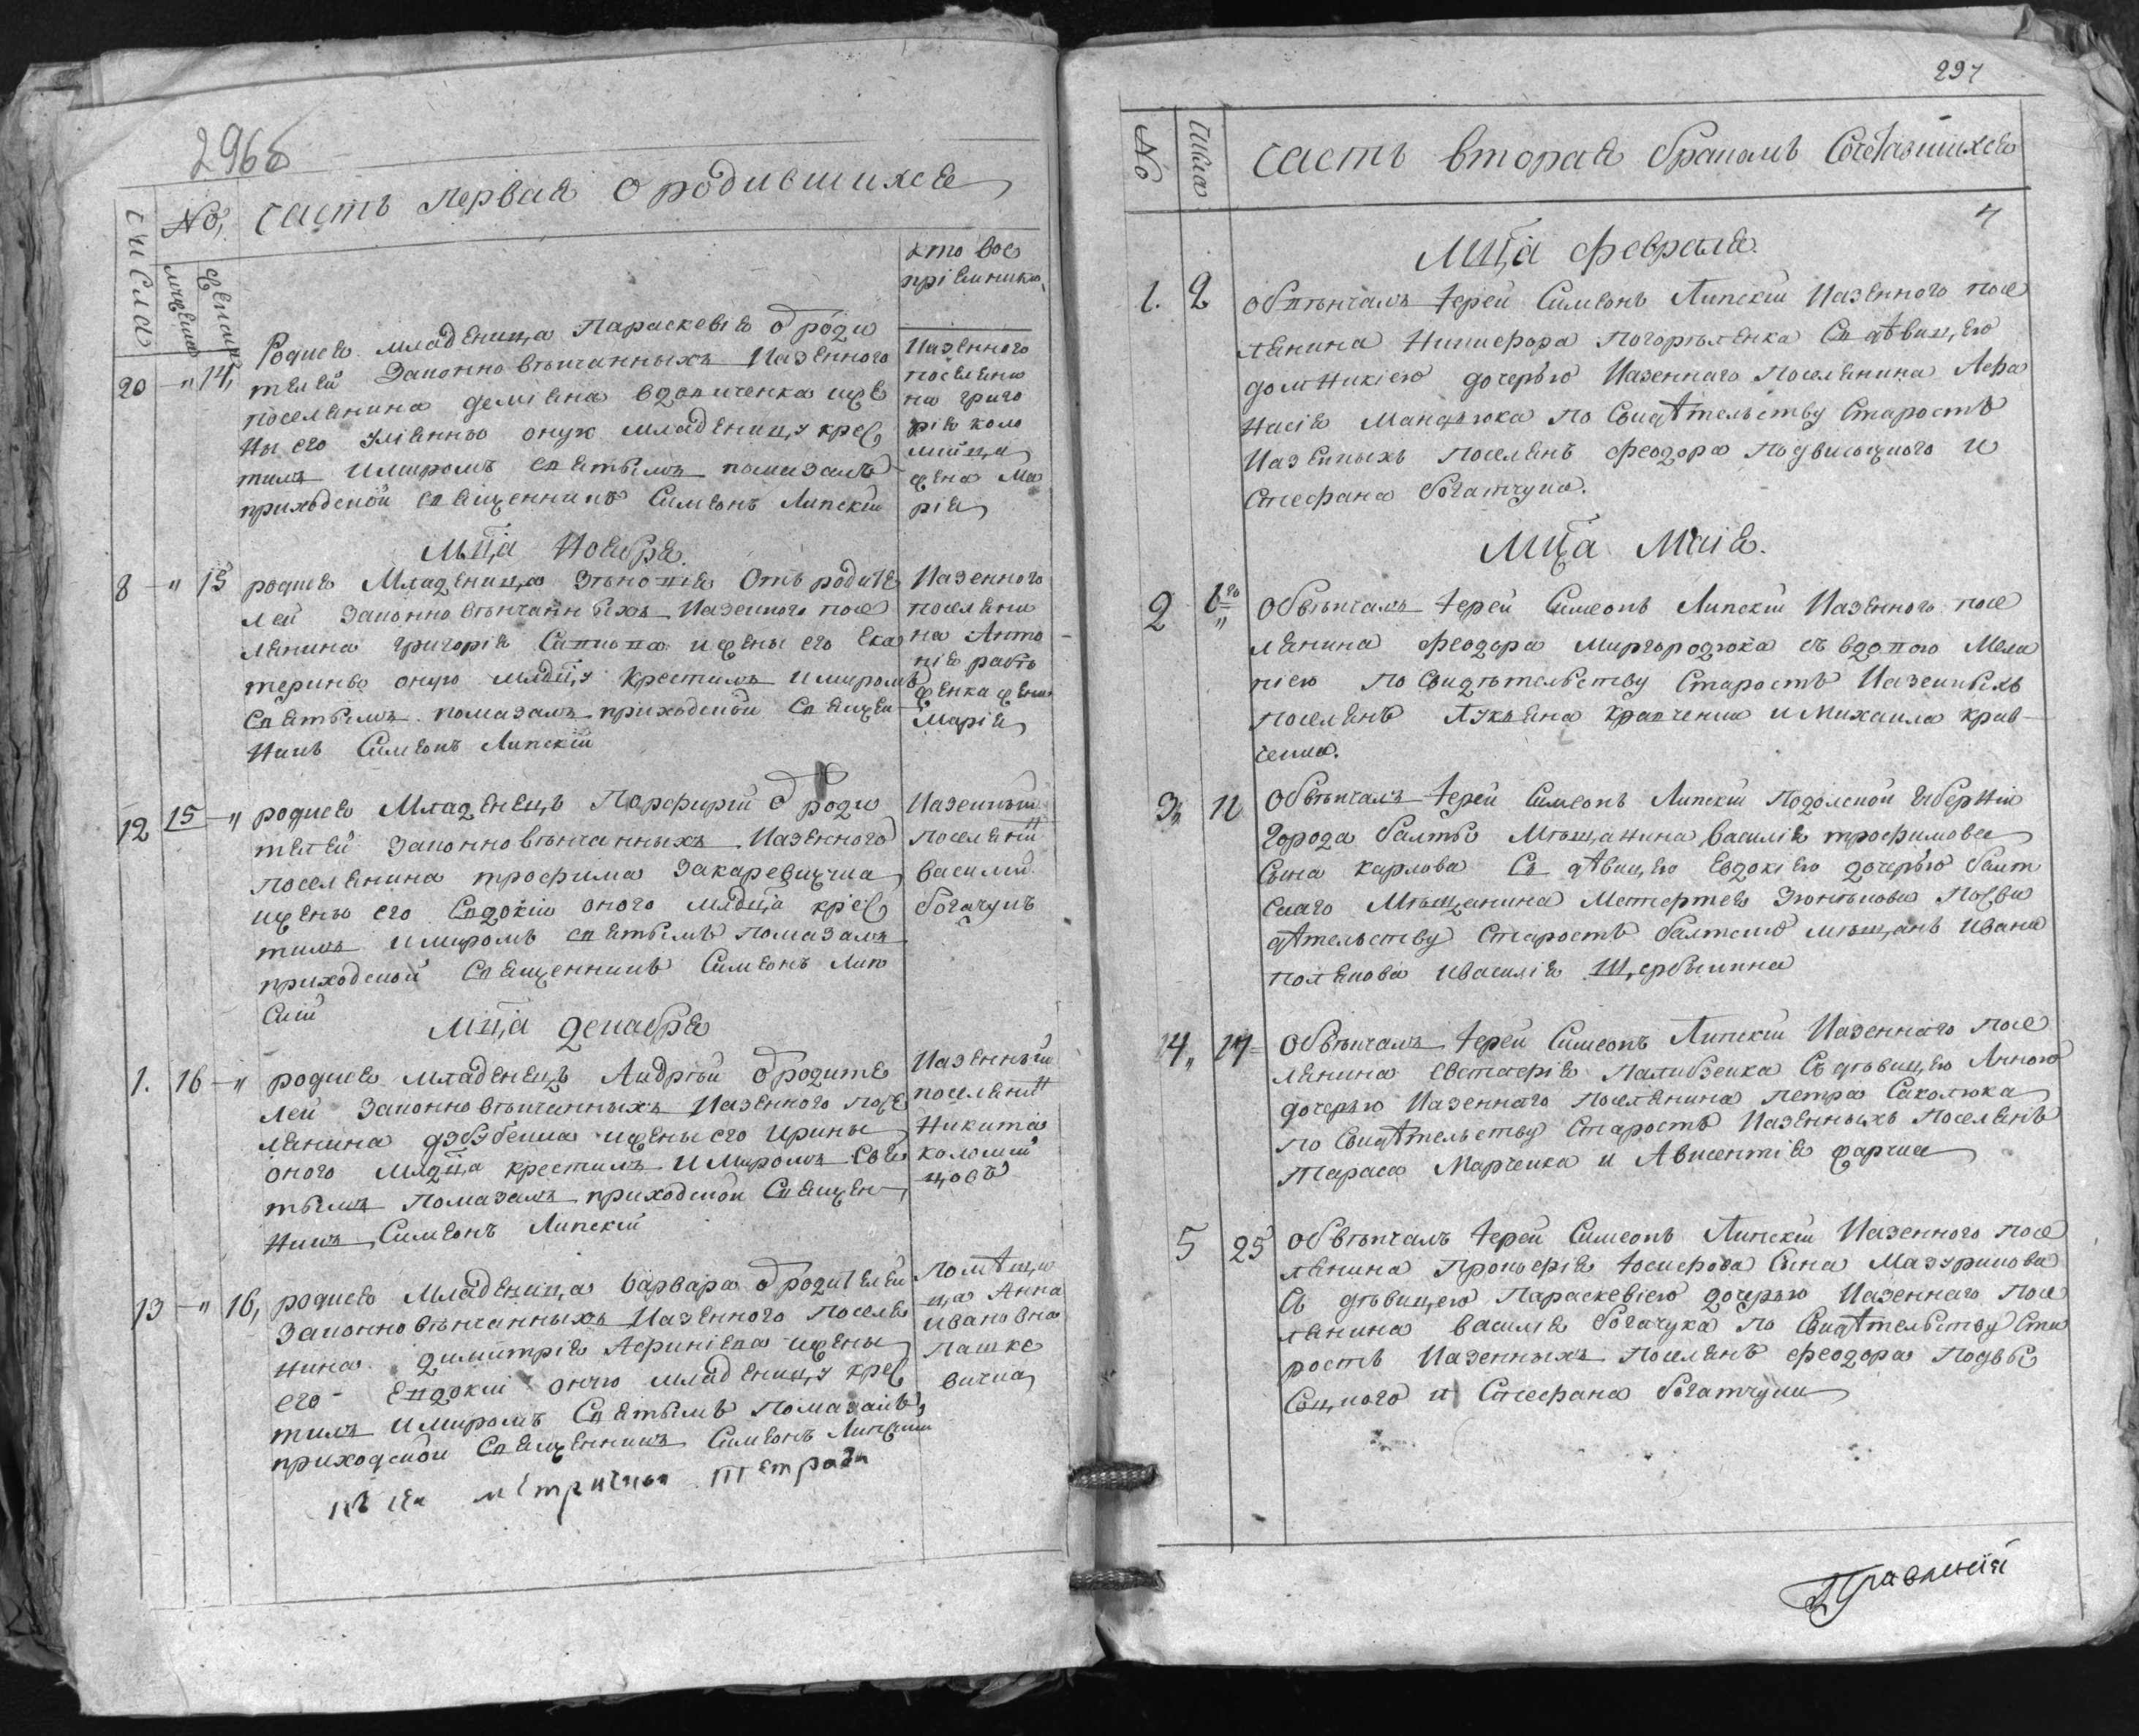 296б
числа
№,
часть первая о родившихся
мужеска
женска
кто вос
приемники
20 — „ 14,
Родися младеница Параскевія о роди
телей Законно вѣнчанныхъ Казенного
поселянина Деміяна Вдовиченка и же
ны его онук младеницу крес
тилъ и миромъ святымъ помазалъ
приходской священникъ Симеонъ Липскій
Казенного
поселяни
на Григо
рія коло
мийца
жена Ма
рія
Мца Ноября
8 — „ 15
родися Младеница Зѣновія Отъ родите
лей Законно вѣнчанныхъ Казенного посе
лянина Григорія и жены его Ека
терины оную младцу крестилъ и миромъ
Святымъ помазалъ приходской Священ
никъ Симеонъ Липскій
Казенного
поселяни
на Анто
нія
жена
Марія
12 15 — „
родися Младенецъ Порфирій о роди
телей Законно вѣнчанныхъ Казенного
поселянина Трофима
и жены его Евдокіи оного младца крес
тилъ и миромъ святымъ помазалъ
приходской Священникъ Симеонъ Лип
скій
Казенный
поселянин
Василій
Богачукъ
Мца Декабря
1. 16 — „
родися младенецъ Андрѣй о родите
лей Законно вѣнчанныхъ Казенного посе
лянина и жены его Ирины
оного младца крестилъ и Миромъ Свя
тымъ Помазалъ приходской Священ
никъ Симеонъ Липскій
Казенный
поселянин
Никита
коломий
цовъ
13 — „ 16,
родися Младеница Варвара о родителей
Законно вѣнчанныхъ Казенного Поселя
нина Димитрія и жены
его Евдокіи оную младеницу крес
тилъ и миромъ Святымъ Помазалъ
приходской Священникъ Симеонъ Липскій
Помѣщи
ца Анна
Ивановна
Пашке
вична
метричная тетради
297
№
Числа
Часть вторая бракомъ Сочетавшихся
4
Мца февраля.
1. 2
Обвѣнчалъ Іерей Симеонъ Липскій Казенного посе
лянина Никифора Погорѣленка Съ дѣвицею
домникіею дочерью Казеннаго поселянина Афа
насія Мандзюка по Свидѣтельству Старостѣ
Казенныхъ Поселянъ Феодора Подвысоцного и
Стефана Богатчука.
Мца Маія.
2 1го
Обвѣнчалъ Іерей Симеонъ Липскій Казенного посе
лянина Феодора Миргородзюка съ вдовою Мела
ніею По Свидѣтельству Старостѣ Казенныхъ
поселянъ Лукьяна Кравченка и Михаила Крав-
ченка.
3„ 11
Обвѣнчалъ Іерей Симеонъ Липскій Подолской Губерніи
Города Балты Мѣщанина Василія Трофимова
Сына Карлова Съ дѣвицею Евдокіею дочерью Балт
скаго Мѣщанина По Сви
дѣтельству Старостѣ балтскихъ мѣщанъ Ивана
Полякова и Василія Щербинина
4„ 14
Обвѣнчалъ Іерей Симеонъ Липскій Казеннаго Посе
лянина Евстафія Съ дѣвицею Анною
дочерью Казеннаго Поселянина Петра Саколюка
по Свидѣтельству Старостѣ Казенныхъ Поселянъ
Тараса Марченка и Авксентія
5 25
Обвѣнчалъ Іерей Симеонъ Липскій Казенного Посе
лянина Прокофія Іосифова Сына Мазурикова
Съ дѣвицею Параскевіею дочерью Казеннаго Посе
лянина Василія Богачука по Свидѣтельству Ста
ростѣ Казенныхъ Поселянъ Феодора Подвы
соцного и Стефана Богатчука